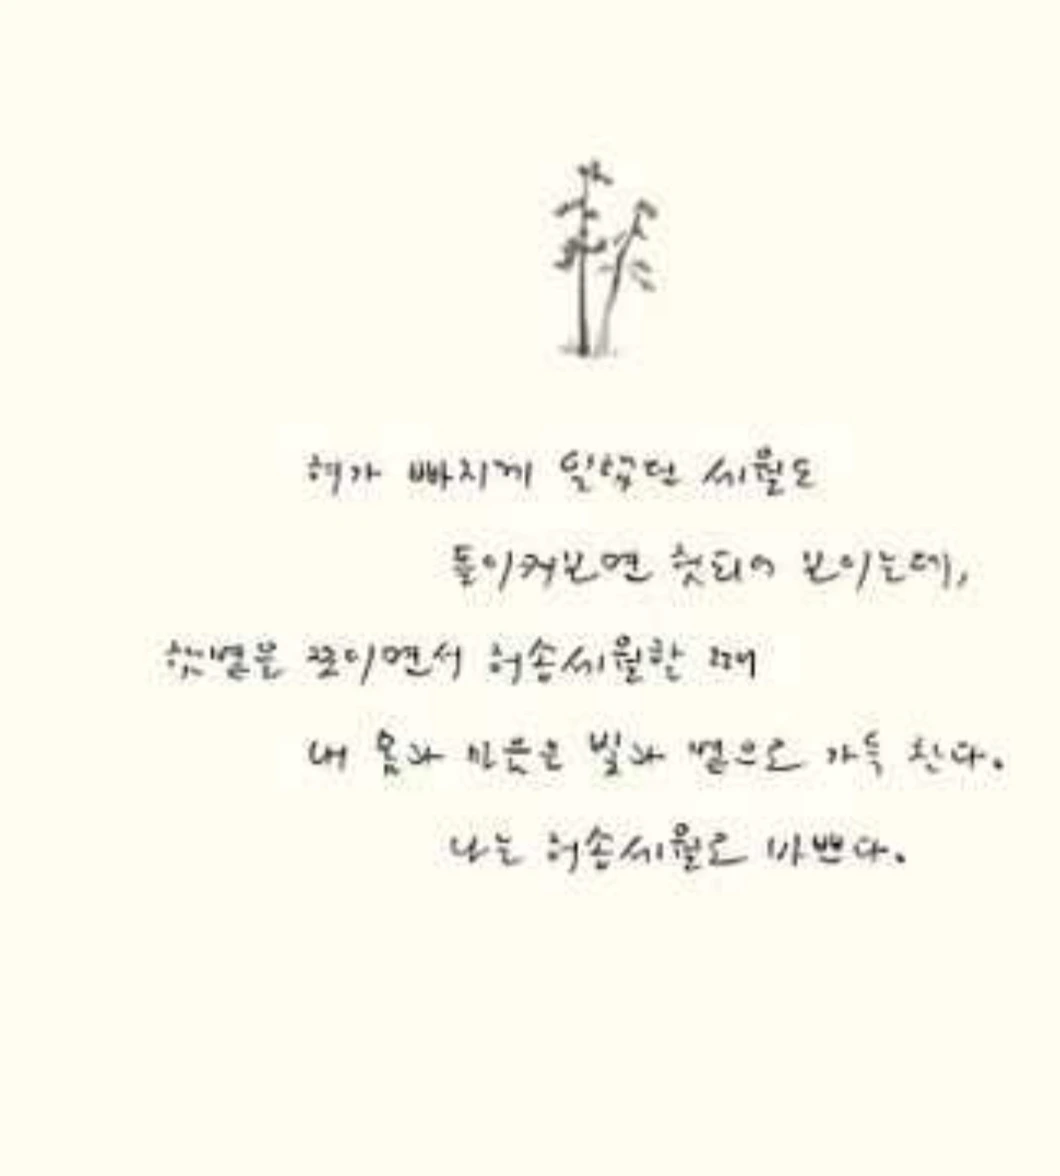 혀가 빠지게 일했던 세월도
돌이켜보면 헛되어 보이는데,
햇볕을 쪼이면서 허송세월할 때
내 몸과 마음은 빛과 볕으로 가득 찬다.
나는 허송세월로 바쁘다.